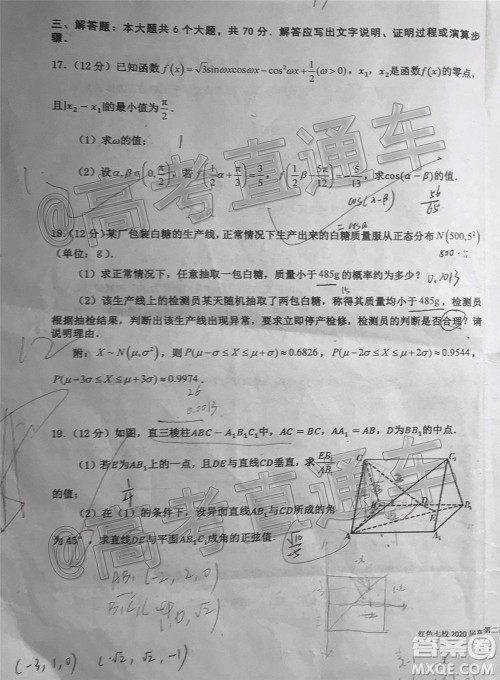 三、解答题：本大题共 6 个大题，共 70 分．解答应写出文字说明、证明过程或演算步
骤．
17．（12 分）已知函数 f(x)=√3sinωxcosωx−cos²ωx+1/2(ω>0)，x₁，x₂是函数f(x)的零点，
且|x₂−x₁|的最小值为π/2．
（1）求ω的值；
1
（2）设α,β∈(0,π/2)，若 f(1/2α+π/3)=3/5，f(1/2β−5π/12)=−5/13，求cos(α−β)的值．
cos(α-β)
56/65
18．（12 分）某厂包装白糖的生产线，正常情况下生产出来的白糖质量服从正态分布N(500,5²)
（单位：g）．
（1）求正常情况下，任意抽取一包白糖，质量小于485g的概率约为多少？
0.0013
（2）该生产线上的检测员某天随机抽取了两包白糖，称得其质量均小于485g，检测员
根据抽检结果，判断出该生产线出现异常，要求立即停产检修，检测员的判断是否合理？请
说明理由．
附：X～N(μ,σ²)，则P(μ−σ≤X≤μ+σ)≈0.6826，P(μ−2σ≤X≤μ+2σ)≈0.9544，
P(μ−3σ≤X≤μ+3σ)≈0.9974．
26
0.0013
12
19．（12 分）如图，直三棱柱ABC−A₁B₁C₁中，AC=BC，AA₁=AB，D为BB₁的中点．
（1）若E为AB₁上的一点，且DE与直线CD垂直，求EB₁/AB₁
的值；
1/4
（2）在（1）的条件下，设异面直线AB₁与CD所成的角
为45°，求直线DE与平面AB₁C₁成角的正弦值．
√10/5
C
C₁
B
D
B₁
E
A
A₁
AB₁(-2,2,0)
B₁C₁(-1,0,√2)
(-3,1,0)
(√2,√2,-1)
红色七校 2020 届高
第二
@高考直通车
@高考直通车
@高考直通车
答案圈
www.daanquan.com